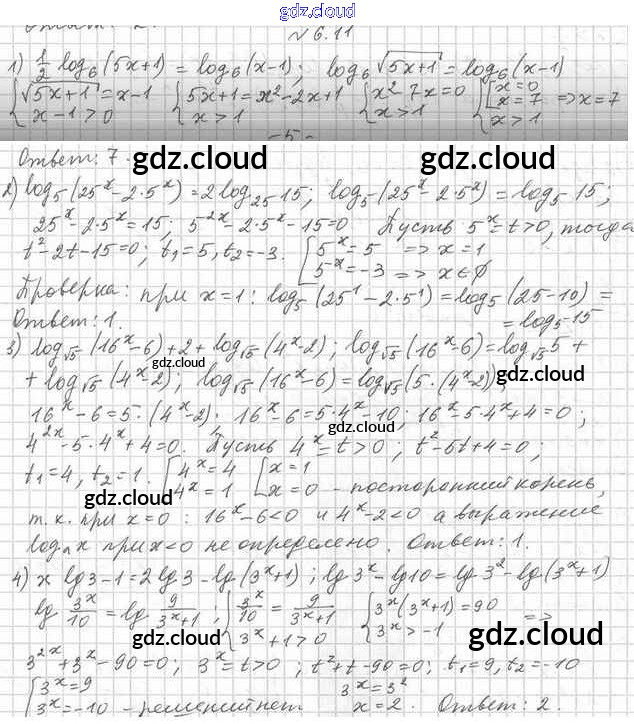 gdz.cloud
№ 6.11
1) 1/2 log₆(5x+1) = log₆(x-1); log₆√(5x+1) = log₆(x-1)
{√(5x+1) = x-1 {5x+1 = x²-2x+1 {x² 7x=0 {[x=0
x=7 => x=7
{x-1>0 {x>1 {x>1 {x>1
-5-
Ответ: 7.
gdz.cloud gdz.cloud
2) log₅(25ˣ-2·5ˣ) = 2log₂₅15; log₅(25ˣ-2·5ˣ) = log₅15;
25ˣ-2·5ˣ=15; 5⁻²ˣ-2·5ˣ-15=0 Пусть 5ˣ=t>0, тогда
t²-2t-15=0; t₁=5, t₂=-3. [5ˣ=5 => x=1
5⁻ˣ=-3 => x∈∅
Проверка: при x=1: log₅(25¹-2·5¹) = log₅(25-10) =
Ответ: 1. = log₅15
3) log√5(16ˣ-6)+2+log√5(4ˣ-2); log√5(16ˣ-6)=log√5 5+
gdz.cloud
+ log√5(4ˣ-2); log√5(16ˣ-6)=log√5(5·(4ˣ-2));
gdz.cloud
16ˣ-6=5·(4ˣ-2); 16ˣ-6=5·4ˣ-10; 16ˣ-5·4ˣ+4=0;
4²ˣ-5·4ˣ+4=0. Пусть 4ˣ=t>0; t²-5t+4=0;
t₁=4, t₂=1. [4ˣ=4 [x=1
4ˣ=1 x=0 - посторонний корень,
gdz.cloud gdz.cloud
т.к. при x=0: 16ˣ-6<0 и 4ˣ-2<0 а выражение
logₙx при x<0 не определено. Ответ: 1.
4) x lg3-1=2lg3-lg(3ˣ+1); lg3ˣ-lg10=lg3²-lg(3ˣ+1)
lg 3ˣ/10 = lg 9/(3ˣ+1); {3ˣ/10 = 9/(3ˣ+1) {3ˣ(3ˣ+1)=90 =>
{3ˣ+1>0 {3ˣ>-1
gdz.cloud gdz.cloud
3²ˣ+3ˣ-90=0; 3ˣ=t>0; t²+t-90=0; t₁=9, t₂=-10
[3ˣ=9 3ˣ=3²
3ˣ=-10 - решений нет x=2. Ответ: 2.
gdz.cloud gdz.cloud